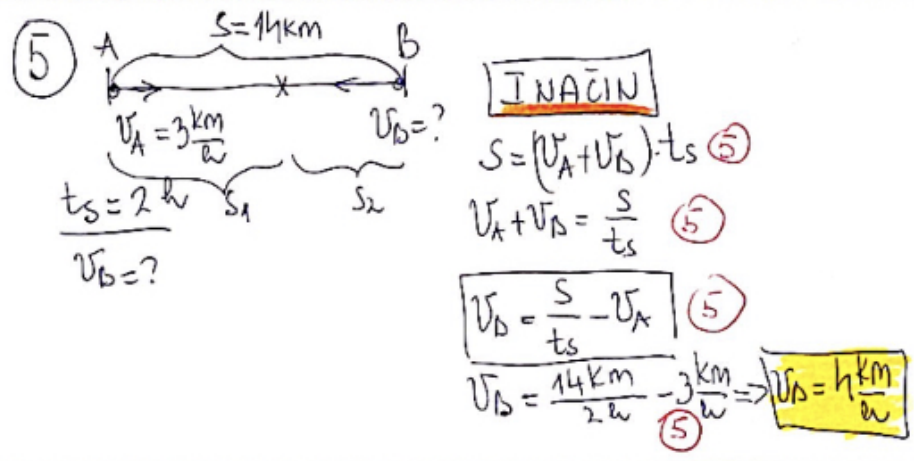 5
A
S=14km
B
V_A = 3 km/h
V_B = ?
S_1
S_2
t_s = 2 h
V_B = ?
I NAČIN
S = (V_A + V_B) · t_s 5
V_A + V_B = S/t_s 5
V_B = S/t_s - V_A 5
V_B = 14km/2h - 3 km/h => V_B = 4 km/h
5